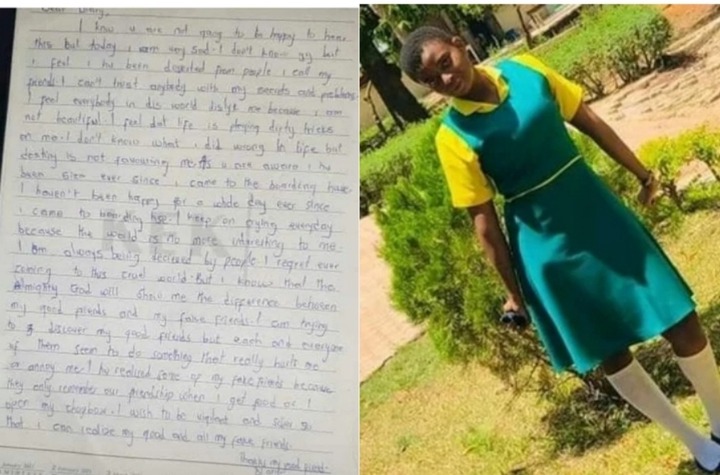 Dear Diary,
I know u are not going to be happy to hear
this but today, i am very sad. I don't know y but
i feel i hv been deserted from people i call my
friends. I can't trust anybody with my secrets and problems.
I feel everybody in dis world dislyk me because i am
not beautiful. I feel dat life is playing dirty tricks
on me. I don't know what i did wrong in life but
destiny is not favouring me. As u are aware i hv
been sick ever since i came to the boarding house.
I haven't been happy for a whole day ever since
i came to boarding hse. I keep on crying everyday
because the world is no more interesting to me.
I am always being deceived by people. I regret ever
coming to this cruel world. But i know that the
Almighty God will show me the difference between
my good friends and my fake friends. I am trying
to discover my good friends but each and everyone
of them seem to do something that really hurts me
or annoy me. I hv realised some of my fake friends because
they only remember our friendship when I get food or I
open my chopbox. I wish to be vigilant and sober so
that i can realise my good and all my fake friends.
Thanks my good friend.